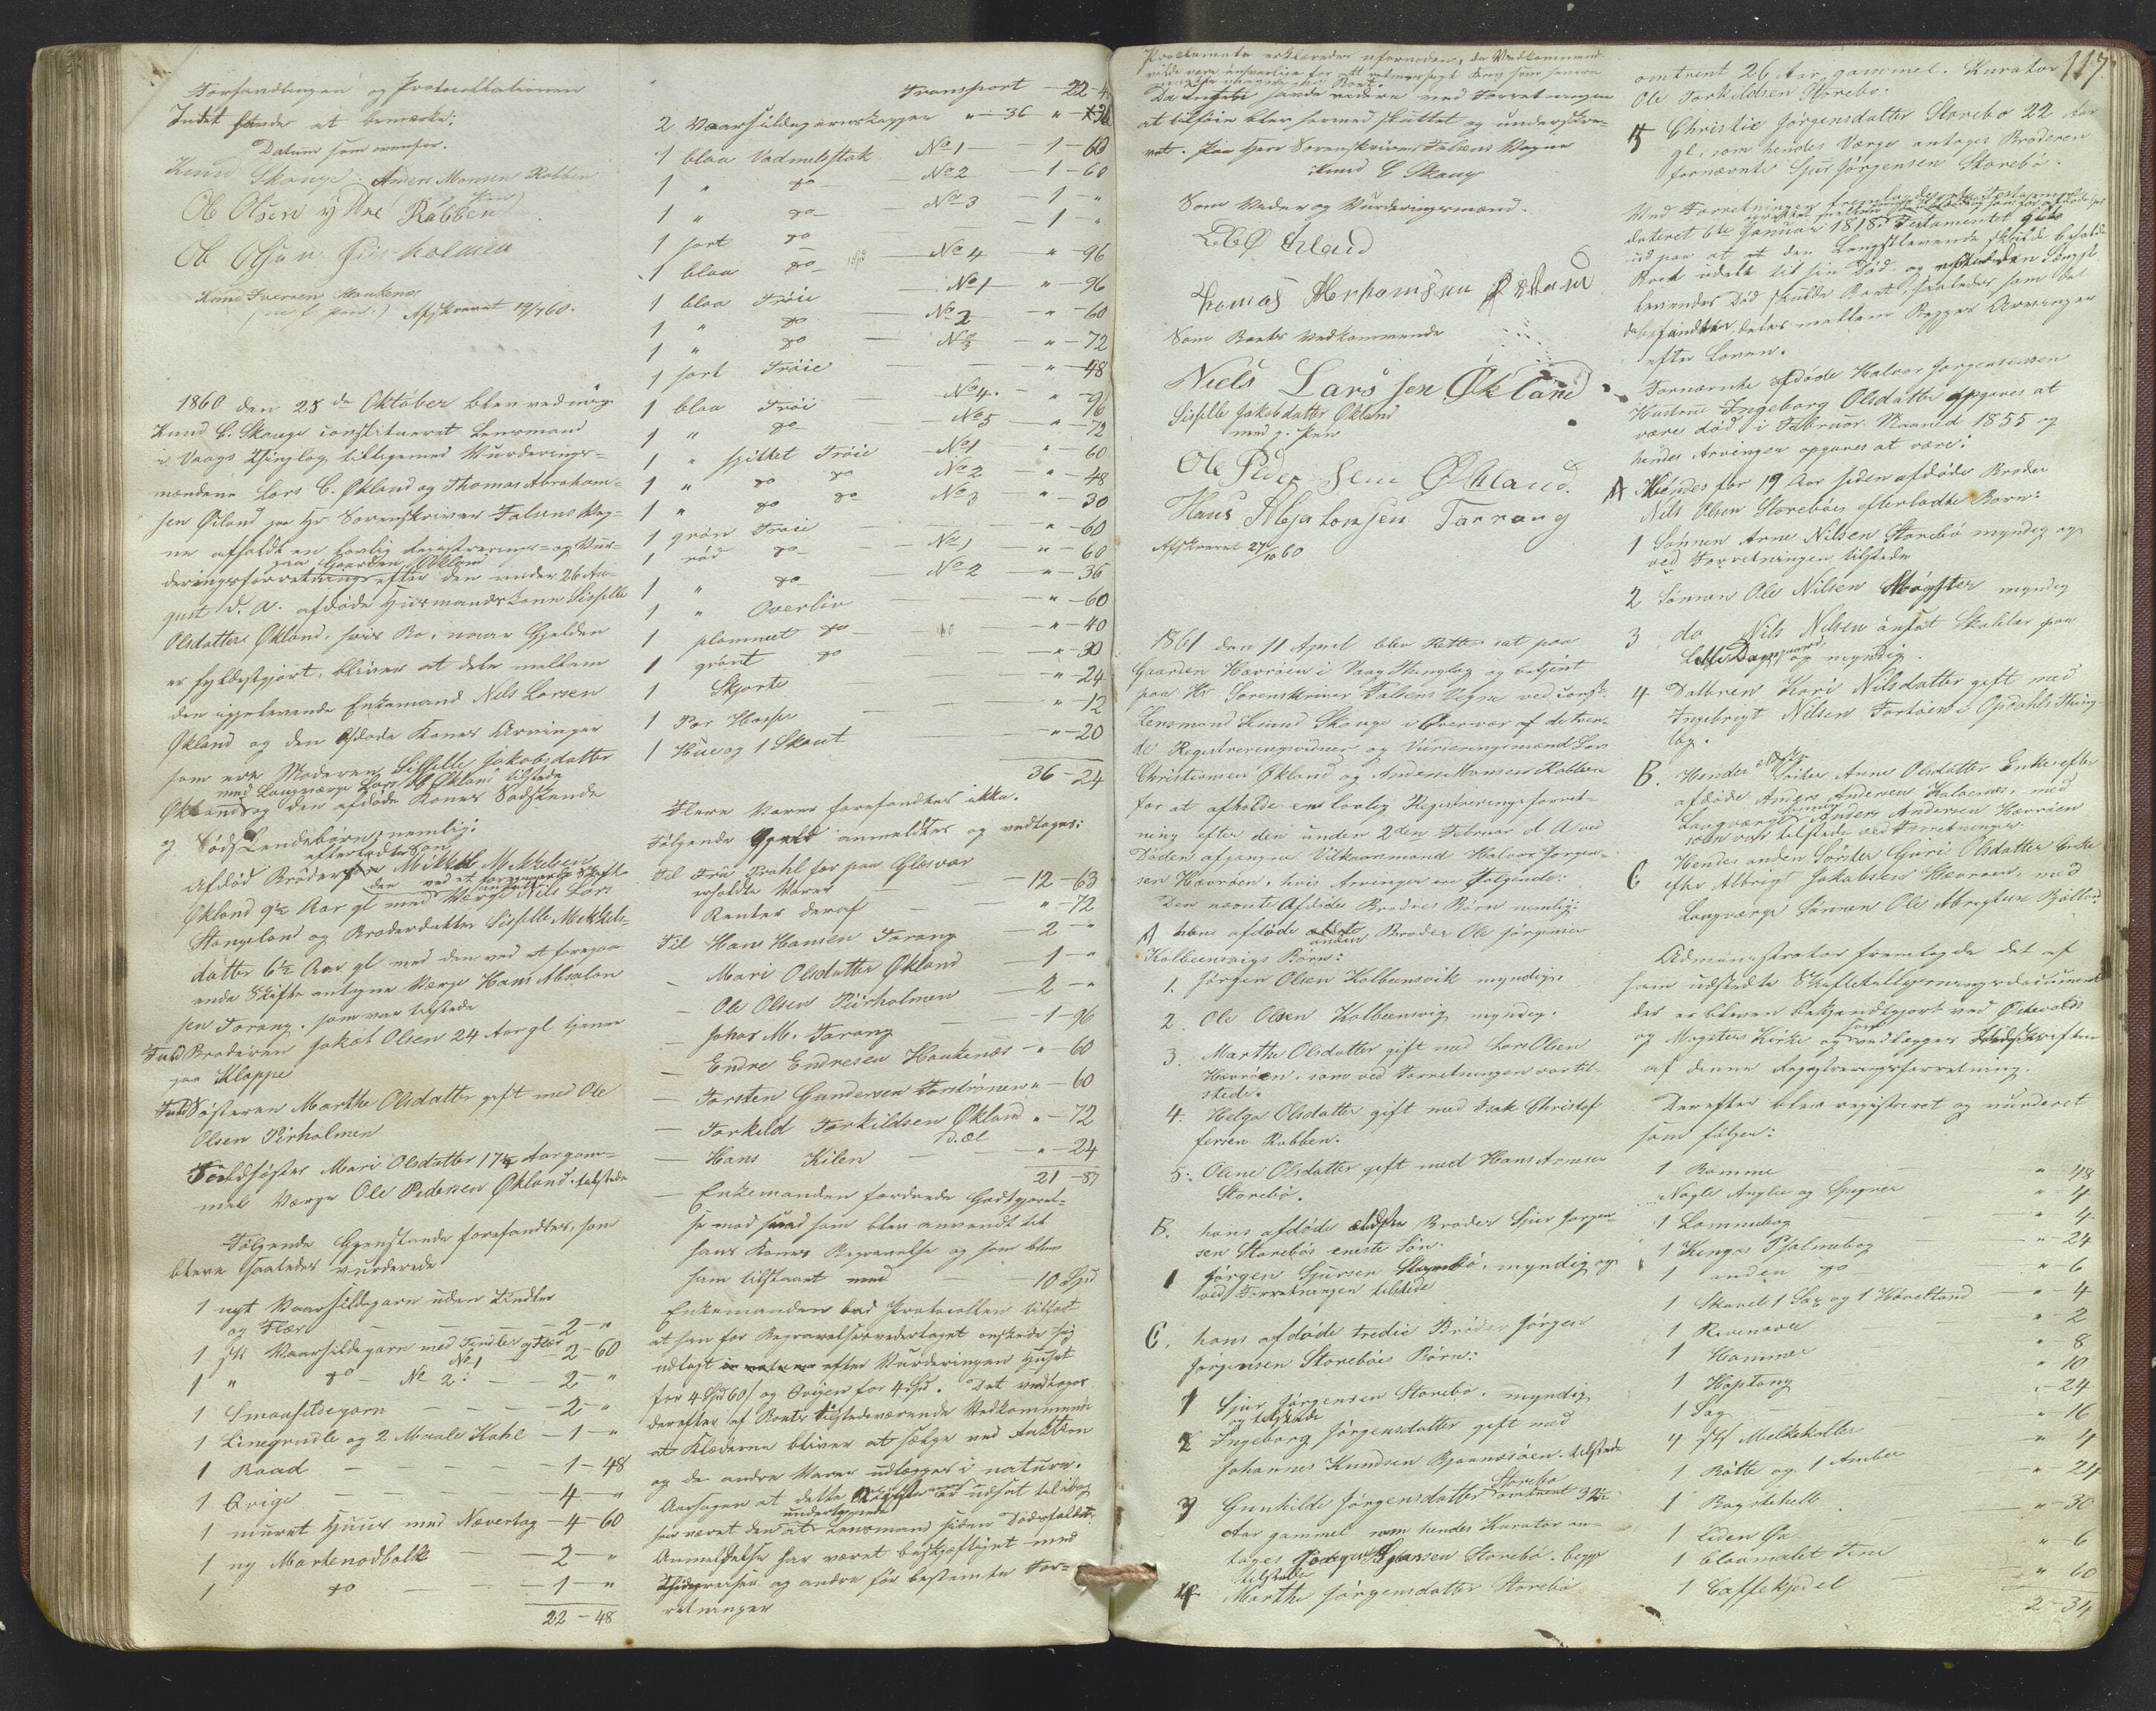 Forhandlingen og Protocollationen
Intet havde at bemærke.
Datum som ovenfor.
Knud Skauge. Anders Monsen Robben
Ole Olsen ydtre Robben
Ole Olsen Pirholmen
Knud Iversen Haukenæs
(m. f. pen.) Afskrevet 19/7 60.
1860 den 25de Oktober blev ved mig
Knud C. Skauge constitueret Lensmand
i Vaags Thinglag tilligemed Vurderings-
mændene Lars C. Økland og Thomas Abraham-
sen Øiland paa Hr Sorenskriver Falsens Veg-
ne afholdt en lovlig Registrerings- og Vur-
paa Gaarden Økland
deringsforretning efter den under 26 Au-
gust d. A. afdøde Huusmandskone Sisselle
Olsdatter Økland, hvis Bo, naar Gjelden
er fyldestgjort, bliver at dele mellem
den igjenlevende Enkemand Nils Larsen
Økland og den afdøde Kones Arvinger
som ere Moderen Sisselle Jakobsdatter
med Laugværge Lars C. Økland tilstede
Økland og den afdøde Kones Sødskende
og Sødskendebørn, nemlig:
efterladte Søn
Afdød Broders Mikkel Mikkelsen
den ved at foregaaende Skifte
Økland 9½ Aar gl med Værge Nils Lars
Stangeland og Broderdatter Sisselle Mikkels-
datter 6½ Aar gl med den ved et foregaa-
ende Skifte antagne Værge Hans Absalon
sen Torang. som var tilstede
Fuld Broderen Jakob Olsen 24 Aar gl tjener
paa Kloppe
Fuld Søsteren Marthe Olsdatter gift med Ole
Olsen Pirholmen
Fuldsøster Mari Olsdatter 17½ Aar gam-
mel Værge Ole Pedersen Økland. tilstede
Følgende Gjenstande forefandtes, som
bleve saaledes vurderede
1 nyt Vaarsildegarn uden Tindler
og Flær — 2 — "
1 st Vaarsildegarn med Tindler og Flær No 1 — 2 — 60
1 " do — No 2: — 2 — "
1 Smaasildegarn — 2 — "
1 Linegrudle og 2 Maale Kahl — 1 — "
1 Baad — 1 — 48
1 Qvige — 4 — "
1 muret Huus med Nævertag — 4 — 60
1 ny Mortenodbolk — 2 — "
1 do — 1 — "
22 — 48
Transport — 22 — 4
2 Vaarsildegarnskapper " — 36 "
1 blaa Vadmelsstak No 1 — 1 — 60
1 " do — No 2 — 1 — 60
1 " do — No 3 — 1 — "
1 sort do — 1 — "
1 blaa do — No 4 — " — 96
1 blaa Trøie — No 1 — " — 96
1 " do — No 2 — " — 60
1 " do — No 3 — " — 72
1 sort Trøie — " — 48
1 blaa Trøi — No 4. — " — 96
1 " do — No 5 — " — 72
1 " spittet Trøie — No 1 — " — 60
1 " do do — No 2 — " — 48
1 " do do — No 3 — " — 30
1 grøn Trøie — " — 60
1 rød do — No 1 — " — 60
1 " do — No 2 — " — 36
1 " Overliv — " — 60
1 plommet do — " — 40
1 grønt do — " — 30
1 Skjorte — " — 24
1 Par Hoser — " — 12
1 Hue og 1 Skaut — " — 20
36 — 24
Flere Varer forefandtes ikke.
Følgende Gjæld anmeldtes og vedtoges:
Til Fru Prahl for paa Glesvær
erholdte Varer — 12 — 63
Renter deraf — " — 72
Til Hans Hansen Torang — 2 — "
— Mari Olsdatter Økland — 1 — "
— Ole Olsen Pirholmen — 2 — "
— Johas M. Torang — 1 — 96
— Endre Endresen Haukenæs — " — 60
— Torsten Gundersen " — 60
— Torkild Torkildsen Økland " — 72
— Hans Kilen — " — 24
21 — 87
— Enkemanden fordrede Godtgjørel-
se mod hvad som blev anvendt til
hans Kones Begravelse og som blev
ham tilstaaet med — 10 Spd
Enkemanden bad Protocollen tilført
at han for Begravelsesvederlaget ønskede sig
udlagt efter Vurderingen Huset
for 4 Spd 60 s og Qvigen for 4 Spd. Det vedtoges
derefter af Boets tilstedeværende Vedkommende
at Klæderne bliver at sælge ved Auktion
og de andre Varer udlægges i natura.
Aarsagen at dette Skifte er udsat til idag
undertegnede
har været den at Lensmand siden Dødsfaldets
Anmeldelse har været beskjæftiget med
Thingreiser og andre før bestemte For-
retninger
Proclamata erklæredes ufornøden, da Vedkommende
vilde være ansvarlige for alt retmæssigt Krav som senere
maatte vaagne hos Boet.
Da Ingen havde videre ved Forretningen
at tilføie blev hermed sluttet og underskre-
vet. Paa Herr Sorenskriver Falsens Vegne
Knud C Skauge
Som Vidner og Vurderingsmænd.
L C Økland
Thomas Abrhamsen Øiland
Som Boets Vedkommende
Niels Larssen Økland
Sisselle Jakobsdatter Økland
med p. Pen
Ole Pedersen Økland.
Hans Absalonsen Tarrang
Afskrevet 27/10 60
1861 den 11 April blev Retten sat paa
Gaarden Hevrøen i Vaag Thinglag og betjent
paa Hr Sorenskriver Falsens Vegne ved const.
Lensmand Knud Skauge i Overvær af de tven-
de Registreringsvidner og Vurderingsmænd Lars
Christiansen Økland og Anders Monsen Robben
for at afholde en lovlig Registreringsforret-
ning efter den under 2den Februar d A ved
Døden afgangne Vilkaarsmand Halvor Jørgen-
sen Hevrøen, hvis Arvinger ere Følgende:
Den nævnte Afdødes Brødres Børn nemlig:
A hans afdøde anden Broder Ole Jørgensen
Kolbeensvigs Børn:
1. Jørgen Olsen Kolbeensvik myndig,
2. Ole Olsen Kolbeensvig myndig.
3. Marthe Olsdatter gift med Lars Olsen
Hevrøen. som ved Forretningen var til-
stede.
4. Helga Olsdatter gift med Isak Christof
fersen Robben.
5. Oline Olsdatter gift med Hans Arnesen
Storebø.
B. hans afdøde ældste Broder Sjur Jørgen-
sen Storebøs eneste Søn.
1 Jørgen Sjursen Storebø, myndig og
ved Forretningen tilstede
C. hans afdøde tredie Broder Jørgen
Jørgensen Storebøes Børn:
1 Sjur Jørgensen Storebø. myndig
og tilstede
2 Ingeborg Jørgensdatter gift med
Johannes Knudsen Bjørnesøen. tilstede
3 Gunhilde Jørgensdatter Storebø omtrent 32½
Aar gammel som hendes Kurator an-
tages Jørgen Sjursen Storebø. begge
tilstede
4 Marthe Jørgensdatter Storebø
117.
omtrent 26 Aar gammel. Kurator
Ole Torkildsen Storebø.
5 Christie Jørgensdatter Storebø 22 Aar
gl, som hendes Værge antages Broderen
fornævnte Sjur Jørgensen Storebø.
Ved Forretningen fremlagdes et Testamente
dateret 6te Januar 1818. Testamentet gik
ud paa at den Længstlevende skulde beholde
Boet udelt til sin Død og efter den Længst
levendes Død skulde Boet, saaledes som det
da befandtes, deles mellem Begges Arvinger
efter Loven.
Fornævnte afdøde Halvor Jørgensens
Hustrue Ingeborg Olsdatter opgaves at
være død i Februar Maaned 1855 og
hendes Arvinger opgaves at være:
A Hendes for 19 Aar siden afdøde Broder
Nils Olsen Storebøes efterladte Børn:
1 Sønnen Arne Nilsen Storebø myndig og
ved Forretningen tilstede
2 Sønnen Ole Nilsen Møgster myndig
3 do Nils Nilsen ansat Skolelær paa
og myndig.
4. Datteren Kari Nilsdatter gift med
Ingebrigt Nilsen Fortøen i Opdahls Thing-
lag.
B. Hendes ældste Søster Anna Olsdatter Enke efter
afdøde Anders Andersen Kalvenæs, med
Laugværge Anders Andersen Hevrøen
som var tilstede ved Forretningen
C Hendes anden Søster Guri Olsdatter Enke
efter Albrigt Jakobsen Hevrøen, med
Laugværge Sønnen Ole Albrigtsen
Administrator fremlagde det af
ham udstedte Skiftetillysningsdocument
der er bleven bekjendtgjort ved Østervolds
og Møgsters Kirke og som vedlægges Udskriften
af denne Registreringsforretning.
Derefter blev registreret og vurderet
som følger:
1 Bomme — " — 48
Nogle Angler og Søgner — " — 4
1 Lommebog — " — 4
1 Kingos Psalmebog — " — 24
1 anden do — " — 6
1 Skavel 1 Sax og 1 — " — 4
1 — " — 2
1 Hammer — " 8
1 Haptang — " 10
1 Sag — " — 24
4 st Melkekoller — " — 16
1 Bøtte og 1 Ambar — " 4
1 Bagstehelle — " — 24
1 Liden — " — 30
1 blaamalet Tine — " 6
1 Caffekjedel — " 60
2 — 34